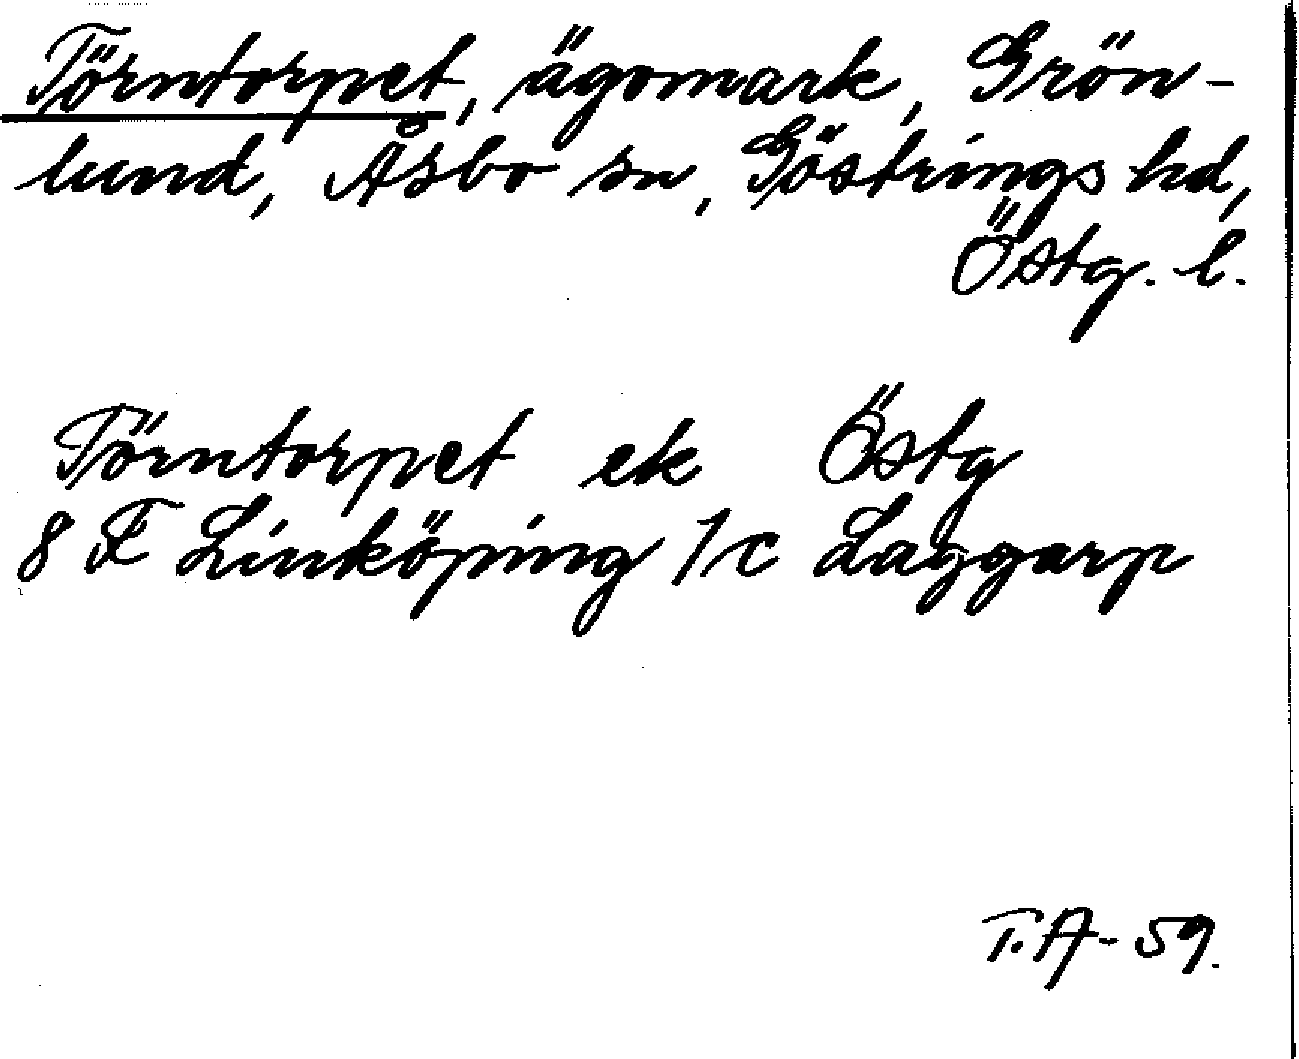 Törntorpet, ägomark, Grön-
lund, Åsbo sn, Göstrings hd,
Östg. l.
Törntorpet ek Östg
8 F Linköping 1c Laggarp
T.A-59.